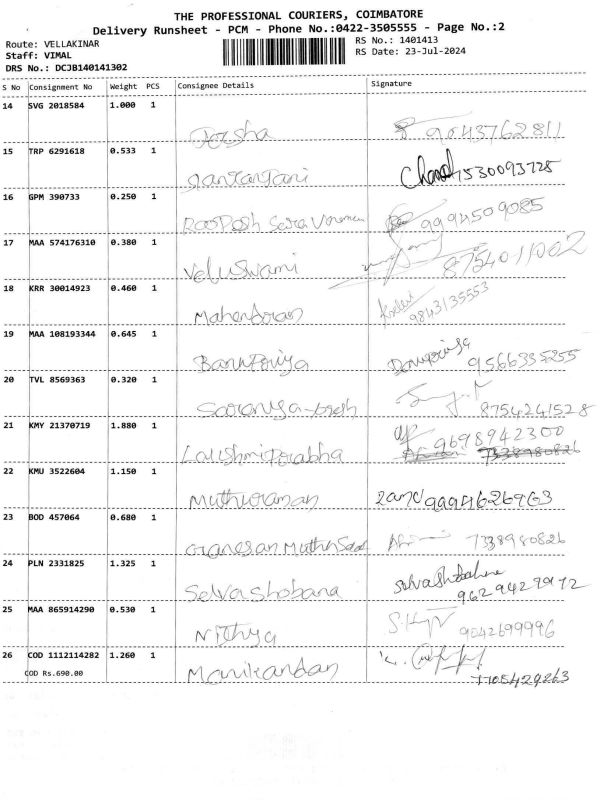 THE PROFESSIONAL COURIERS, COIMBATORE
Delivery Runsheet - PCM - Phone No.:0422-3505555 - Page No.:2
Route: VELLAKINAR
RS No.: 1401413
Staff: VIMAL
RS Date: 23-Jul-2024
DRS No.: DCJB140141302
S No Consignment No Weight PCS Consignee Details Signature
14 SVG 2018584 1.000 1
9043762811
15 TRP 6291618 0.533 1
7530093728
16 GPM 390733 0.250 1
9994509085
17 MAA 574176310 0.380 1
Veluswami 8754011002
18 KRR 30014923 0.460 1
Mahendran 9843135553
19 MAA 108193344 0.645 1
Banupriya 9566335255
20 TVL 8569363 0.320 1
8754241528
21 KMY 21370719 1.880 1
9698942300
Laushmiprabha 7338980826
22 KMU 3522604 1.150 1
Muthuraman 9994626963
23 BOD 457064 0.680 1
Ganesan Muthu 7338980826
24 PLN 2331825 1.325 1
Selvashobana 9629429972
25 MAA 865914290 0.530 1
Nithya 9042699996
26 COD 1112114282 1.260 1
COD Rs.690.00 Manikandan 7705429263